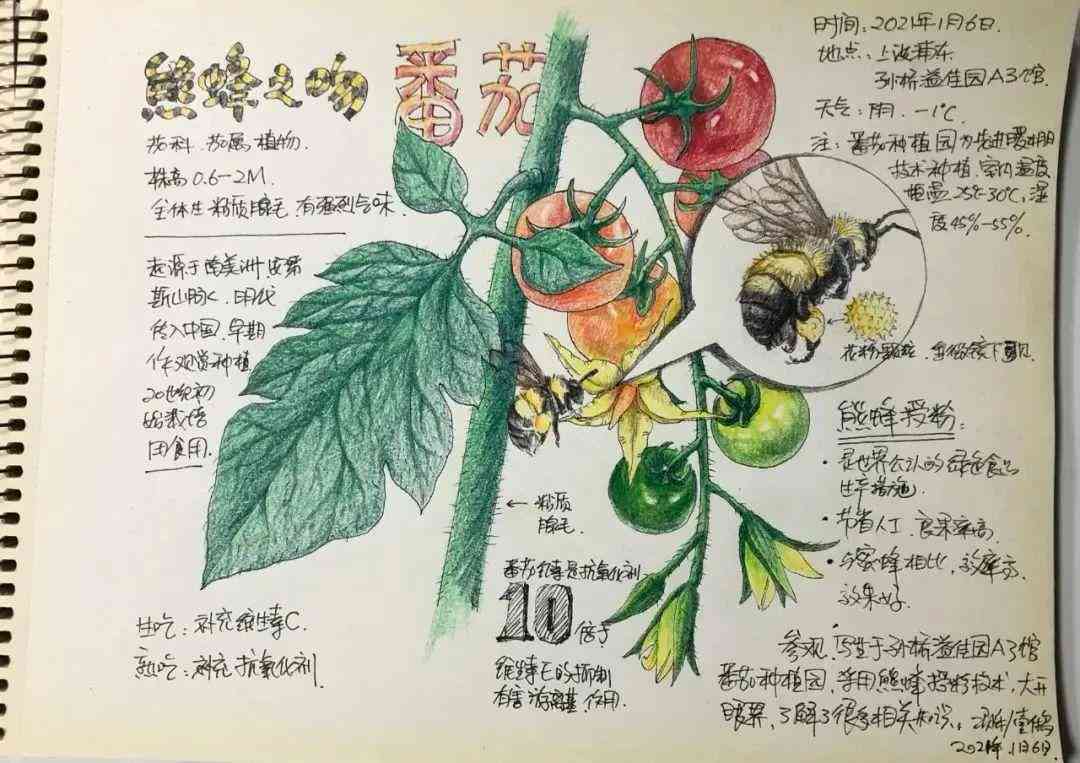 熊蜂之吻 番茄
茄科.茄属.植物.
株高0.6-2M.
全体生粘质腺毛.有强烈气味.
起源于南美洲.安第
斯山脉.明代
传入中国.早期
作观赏种植.
20世纪初
始栽培
田食用.
生吃:补充维生素C.
熟吃:补充抗氧化剂.
← 粘质
腺毛.
番茄红素是抗氧化剂
10倍于
维生素E的抑制
有害游离基.作用.
时间:2021年1月6日.
地点:上海浦东
孙桥益佳园A3馆.
天气:阴.-1℃
注:番茄种植园为先进暖棚
技术种植.室内温度
恒温25℃-30℃,湿
度45%-55%.
花粉颗粒.显微镜下
熊蜂授粉:
·是世界公认的绿色食品
生产措施.
·节省人工.良果率高.
·与蜜蜂相比,效率高.
效果好.
参观.写生于孙桥益佳园A3馆
番茄种植园.采用熊蜂授粉技术.大开
眼界.了解了很多相关知识.
2021年.1月6日.